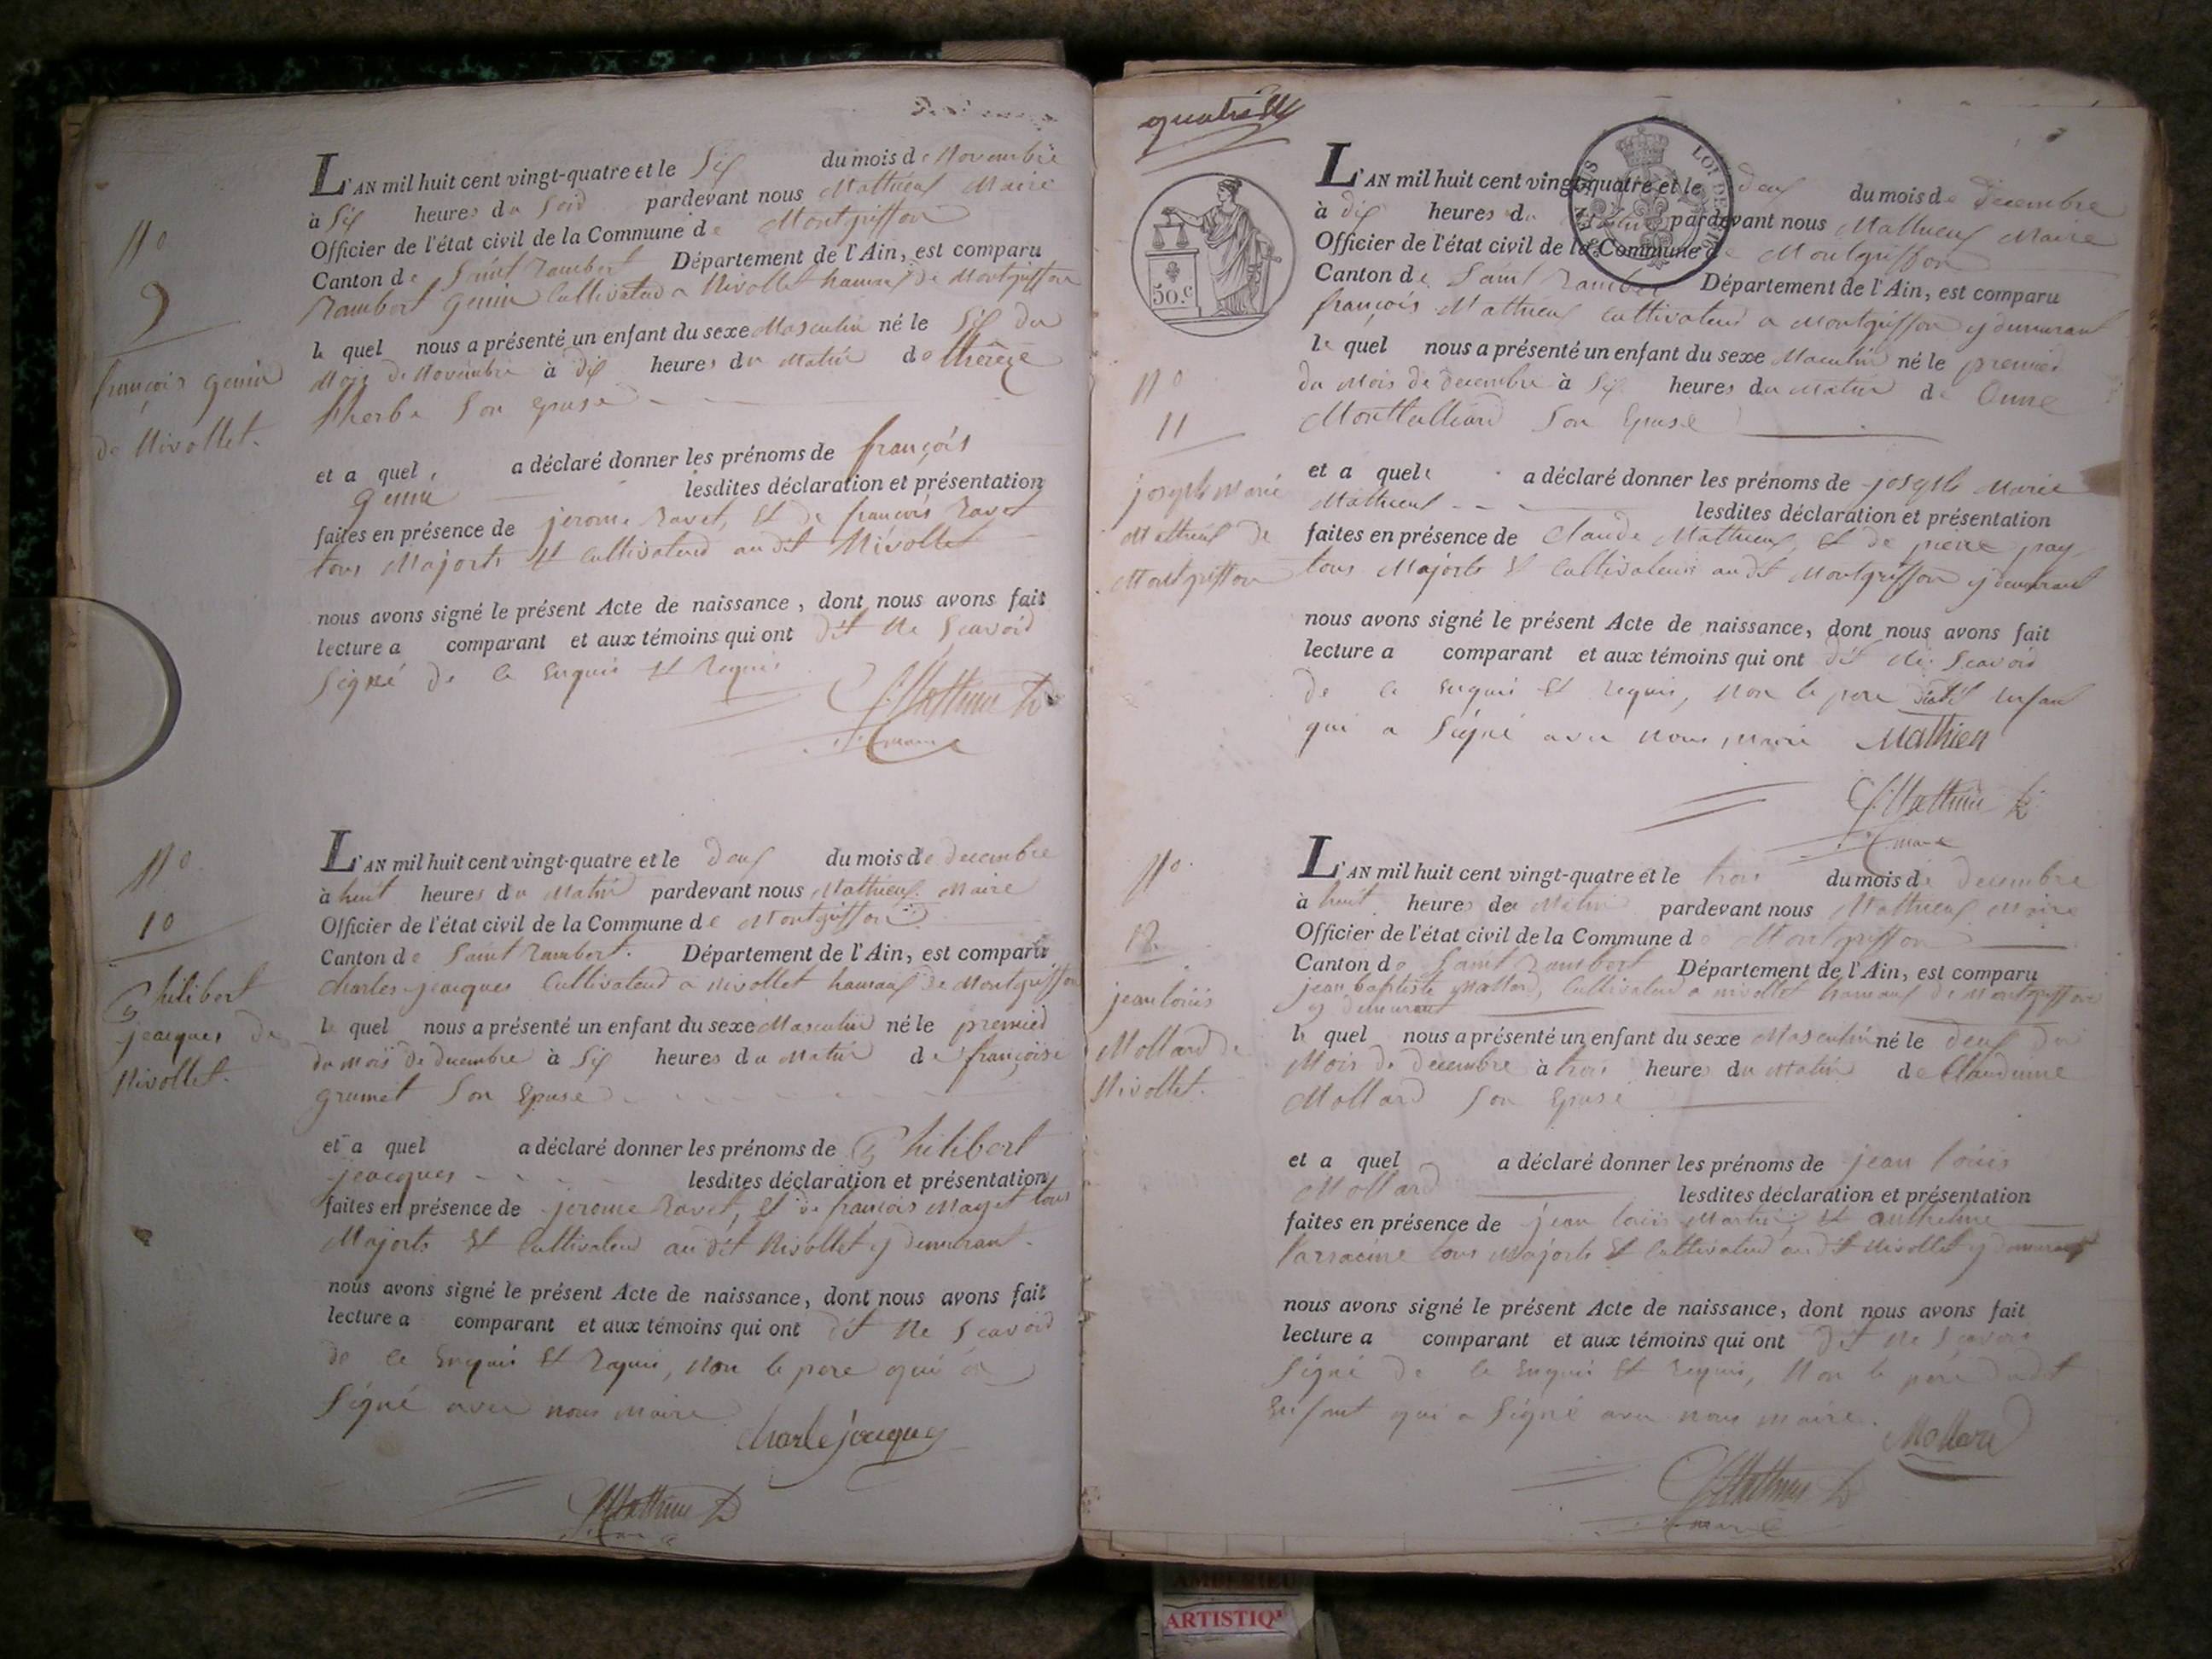 N°
9
françois genin
de Nivollet.
L'AN mil huit cent vingt-quatre et le Six du mois de Novembre
à Six heures du Soir pardevant nous Mathieux Maire
Officier de l'état civil de la Commune de Montgriffon
Canton de Saint Rambert Département de l'Ain, est comparu
Rambert genin Cultivateur a Nivollet hameaux de Montgriffon
le quel nous a présenté un enfant du sexe Masculin né le Six du
Mois de Novembre à dix heures du Matin de thérèze
Son epuse
et a quel a déclaré donner les prénoms de françois
genin lesdites déclaration et présentation
faites en présence de jerome Ravet, Et de francois Ravet
tous Majorts Et Cultivateur au dit Nivollet
nous avons signé le présent Acte de naissance, dont nous avons fait
lecture a comparant et aux témoins qui ont dit Ne Scavoir
Signé de Ce Enquis Et Requis
Mathieu
maire
N°
10
Philibert
jeacques de
Nivollet.
L'AN mil huit cent vingt-quatre et le deux du mois de decembre
à huit heures du Matin pardevant nous Mathieux Maire
Officier de l'état civil de la Commune de Montgriffon
Canton de Saint Rambert. Département de l'Ain, est comparu
Charles jeacques Cultivateur a nivollet hameaux de Montgriffon
le quel nous a présenté un enfant du sexe Masculin né le premier
du Mois de decembre à Six heures du Matin de françoise
grumet Son Epuse
et a quel a déclaré donner les prénoms de Philibert
jeacques lesdites déclaration et présentation
faites en présence de jerome Ravet, Et de francois Mayet tous
Majorts Et Cultivateur au dit Nivollet y demeurant
nous avons signé le présent Acte de naissance, dont nous avons fait
lecture a comparant et aux témoins qui ont dit Ne Scavoir
de Ce Enquis Et Requis, Non le pere qui a
Signé avec nous Maire
Charle jacques
Mathieu
quatre
50.c
N°
11
joseph Marie
Mathieux de
Montgriffon
L'AN mil huit cent vingt-quatre et le deux du mois de decembre
à dix heures du pardevant nous Mathieux Maire
Officier de l'état civil de la Commune de Montgriffon
Canton de Saint Rambert Département de l'Ain, est comparu
françois Mathieux Cultivateur a Montgriffon y demeurant
le quel nous a présenté un enfant du sexe Masculin né le premier
du Mois de decembre à Six heures du Matin de Anne
Son Epuse
et a quel a déclaré donner les prénoms de joseph Marie
Mathieux lesdites déclaration et présentation
faites en présence de Claude Mathieux, Et de pierre
tous Majorts Et Cultivateur au dit Montgriffon y demeurant
nous avons signé le présent Acte de naissance, dont nous avons fait
lecture a comparant et aux témoins qui ont dit Ne Scavoir
de Ce Enquis Et Requis, Non le pere dudit Enfant
qui a Signé avec nous Maire Mathieu
Mathieu
maire
N°
12.
jean louis
Mollard de
Nivollet.
L'AN mil huit cent vingt-quatre et le trois du mois de decembre
à huit heures du Matin pardevant nous Mathieux Maire
Officier de l'état civil de la Commune de Montgriffon
Canton de Saint Rambert Département de l'Ain, est comparu
jean baptiste Mollard, Cultivateur a nivollet hameaux de Montgriffon
y demeurant
le quel nous a présenté un enfant du sexe Masculin né le deux du
Mois de decembre à trois heures du Matin de Claudine
Mollard Son Epuse
et a quel a déclaré donner les prénoms de jean louis
Mollard lesdites déclaration et présentation
faites en présence de jean louis Martin Et anthelme
tous Majorts Et Cultivateur au dit Nivollet y demeurant
nous avons signé le présent Acte de naissance, dont nous avons fait
lecture a comparant et aux témoins qui ont dit Ne Scavoir
Signé de Ce Enquis Et Requis, Non le pere dudit
Enfant qui a Signé avec nous Maire. Mollard
Mathieu
maire
ARTISTIQ